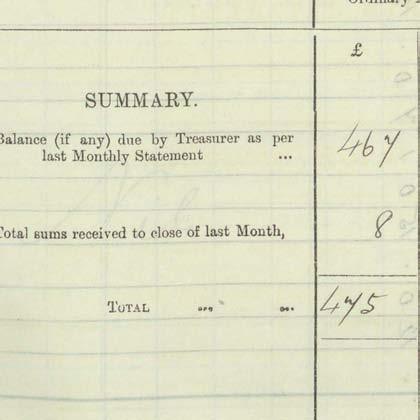 £
SUMMARY.
Balance (if any) due by Treasurer as per
last Monthly Statement ... 467
Total sums received to close of last Month, 8
TOTAL ... ... 475